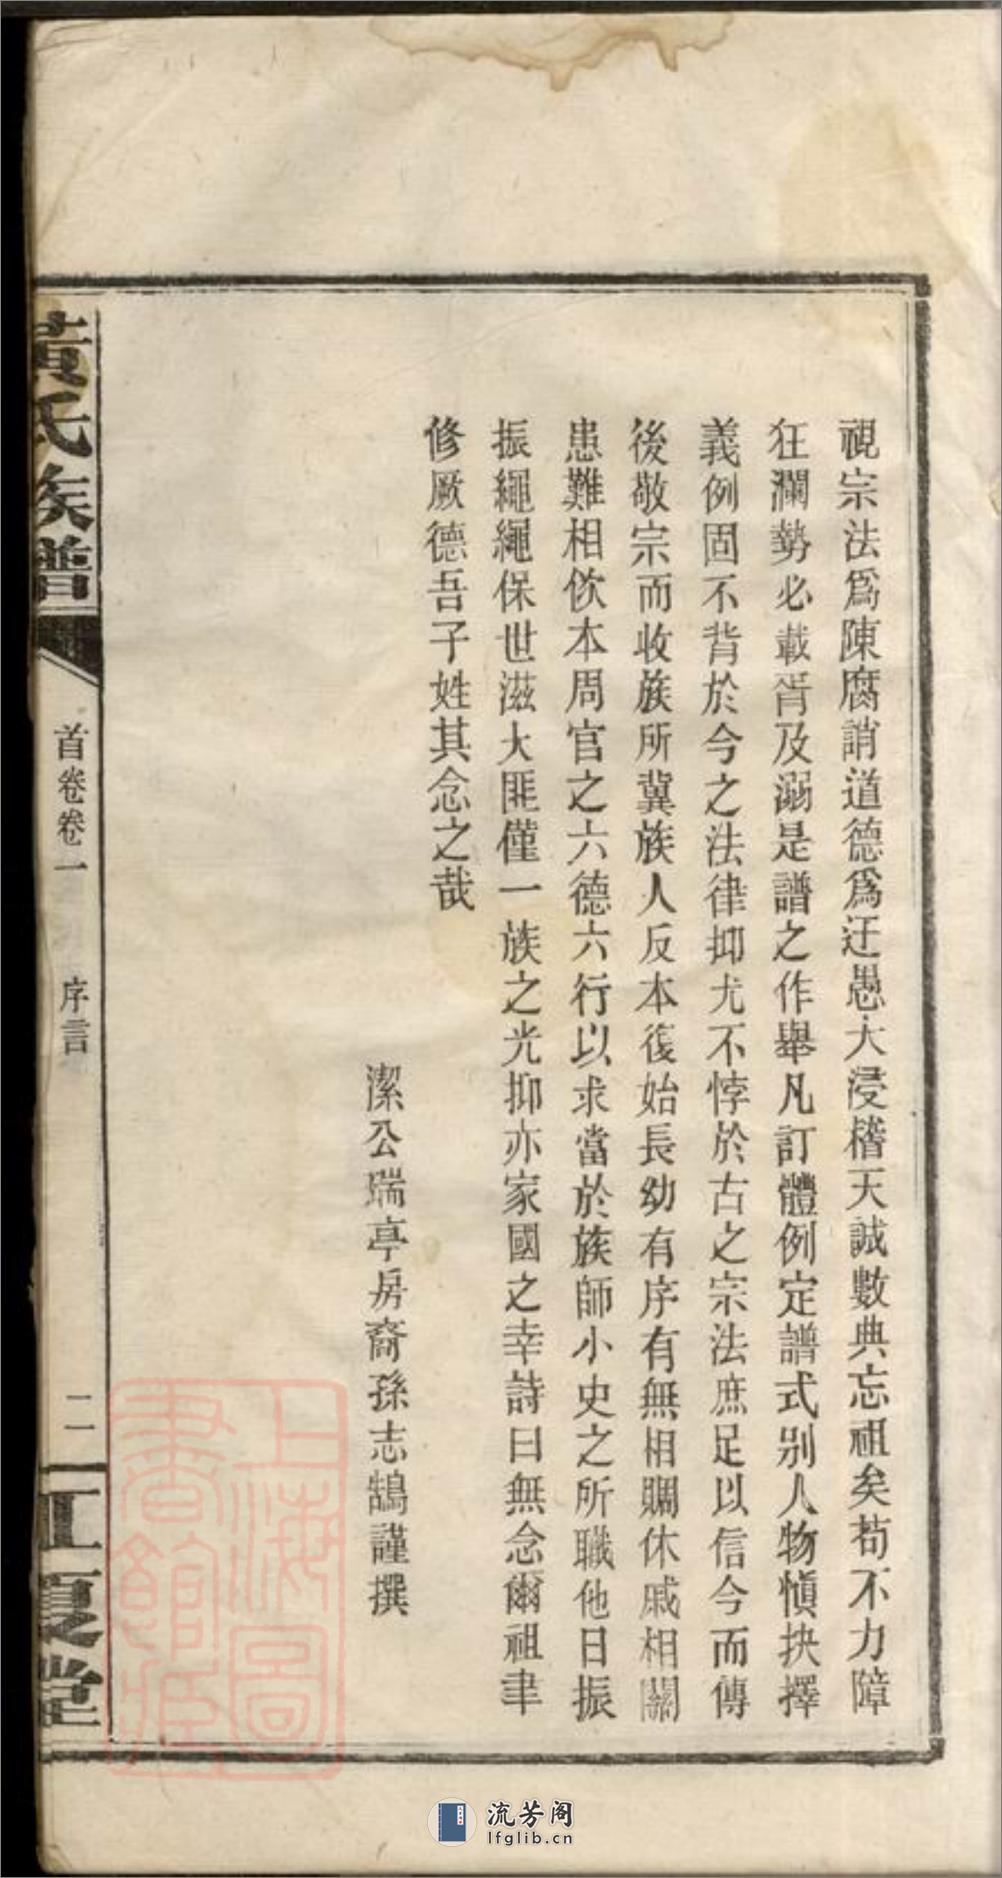 視宗法爲陳腐誚道德爲迂愚大浸稽天誠數典忘祖矣苟不力障
狂瀾勢必載胥及溺是譜之作舉凡訂體例定譜式別人物愼抉擇
義例固不背於今之法律抑尤不悖於古之宗法庶足以信今而傳
後敬宗而收族所冀族人反本復始長幼有序有無相賙休戚相關
患難相佽本周官之六德六行以求當於族師小史之所職他日振
振繩繩保世滋大匪僅一族之光抑亦家國之幸詩曰無念爾祖聿
修厥德吾子姓其念之哉
潔公瑞亭房裔孫志鵠謹撰
黃氏族譜
首卷卷一
序言
二
江夏堂
上海圖書館藏
流芳阁
lfglib.cn